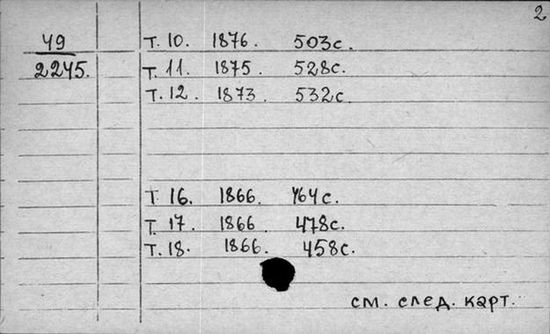 2
49 т. 10. 1876. 503с.
2245. т. 11. 1875. 528с.
т. 12. 1873. 532с.
т. 16. 1866. 464с.
т. 17. 1866 478с.
т. 18. 1866. 458с.
см. след. карт.